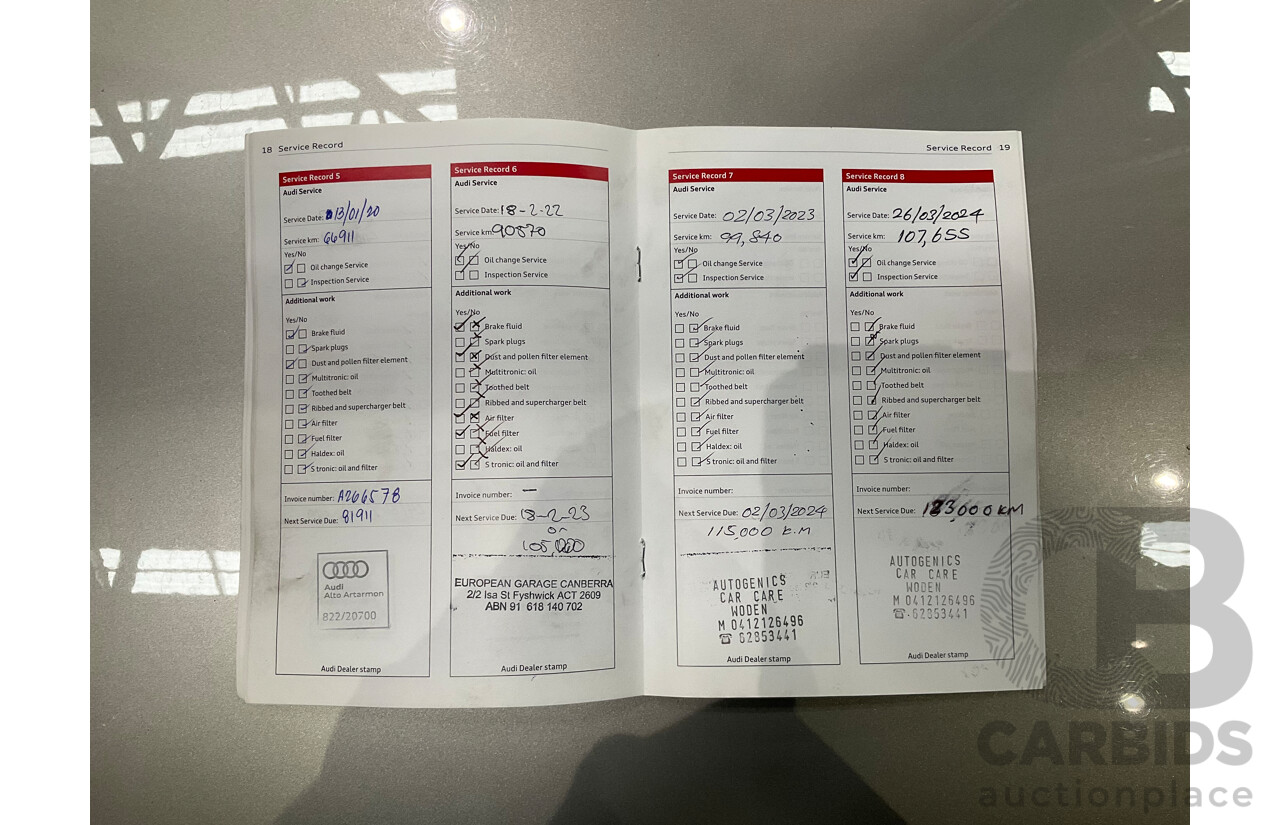 18 Service Record
Service Record 5
Audi Service
Service Date: 13/01/20
Service km: 66911
Yes/No
Oil change Service
Inspection Service
Additional work
Yes/No
Brake fluid
Spark plugs
Dust and pollen filter element
Multitronic: oil
Toothed belt
Ribbed and supercharger belt
Air filter
Fuel filter
Haldex: oil
S tronic: oil and filter
Invoice number: A266578
Next Service Due: 81911
Audi
Alto Artarmon
822/20700
Audi Dealer stamp
Service Record 6
Audi Service
Service Date: 18-2-22
Service km: 90870
Yes/No
Oil change Service
Inspection Service
Additional work
Yes/No
Brake fluid
Spark plugs
Dust and pollen filter element
Multitronic: oil
Toothed belt
Ribbed and supercharger belt
Air filter
Fuel filter
Haldex: oil
S tronic: oil and filter
Invoice number: —
Next Service Due: 18-2-23
or
105,000
EUROPEAN GARAGE CANBERRA
2/2 Isa St Fyshwick ACT 2609
ABN 91 618 140 702
Audi Dealer stamp
Service Record 19
Service Record 7
Audi Service
Service Date: 02/03/2023
Service km: 99,840
Yes/No
Oil change Service
Inspection Service
Additional work
Yes/No
Brake fluid
Spark plugs
Dust and pollen filter element
Multitronic: oil
Toothed belt
Ribbed and supercharger belt
Air filter
Fuel filter
Haldex: oil
S tronic: oil and filter
Invoice number:
Next Service Due: 02/03/2024
115,000 K.M
AUTOGENICS
CAR CARE
WODEN
M 0412126496
☎ 62853441
Audi Dealer stamp
Service Record 8
Audi Service
Service Date: 26/03/2024
Service km: 107,655
Yes/No
Oil change Service
Inspection Service
Additional work
Yes/No
Brake fluid
Spark plugs
Dust and pollen filter element
Multitronic: oil
Toothed belt
Ribbed and supercharger belt
Air filter
Fuel filter
Haldex: oil
S tronic: oil and filter
Invoice number:
Next Service Due: 123,000 KM
AUTOGENICS
CAR CARE
WODEN
M 0412126496
☎ 62853441
Audi Dealer stamp
CB
CARBIDS
auctionplace